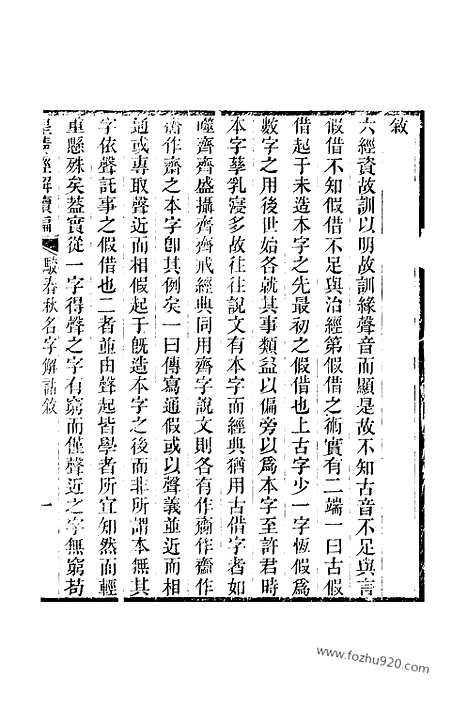 敘
六經資故訓以明故訓緣聲音而顯是故不知古音不足與言
假借不知假借不足與治經第假借之術實有二端一曰古假
借起于未造本字之先最初之假借也上古字少一字恆假爲
數字之用後世始各就其事類益以偏旁以爲本字至許君時
本字孳乳寖多故往往說文有本字而經典猶用古借字者如
噬齊齊盛攝齊齊戒經典同用齊字說文則各有作
作齋之本字卽其例矣一曰傳寫通假或以聲義並近而相
通或專取聲近而相假起于旣造本字之後而非所謂本無其
字依聲託事之假借也二者並由聲起皆學者所宜知然而輕
重懸殊矣葢實從一字得聲之字有窮而僅聲近之字無窮苟
皇淸經解續編 駁春秋名字解詁敘 一
www.fozhu920.com